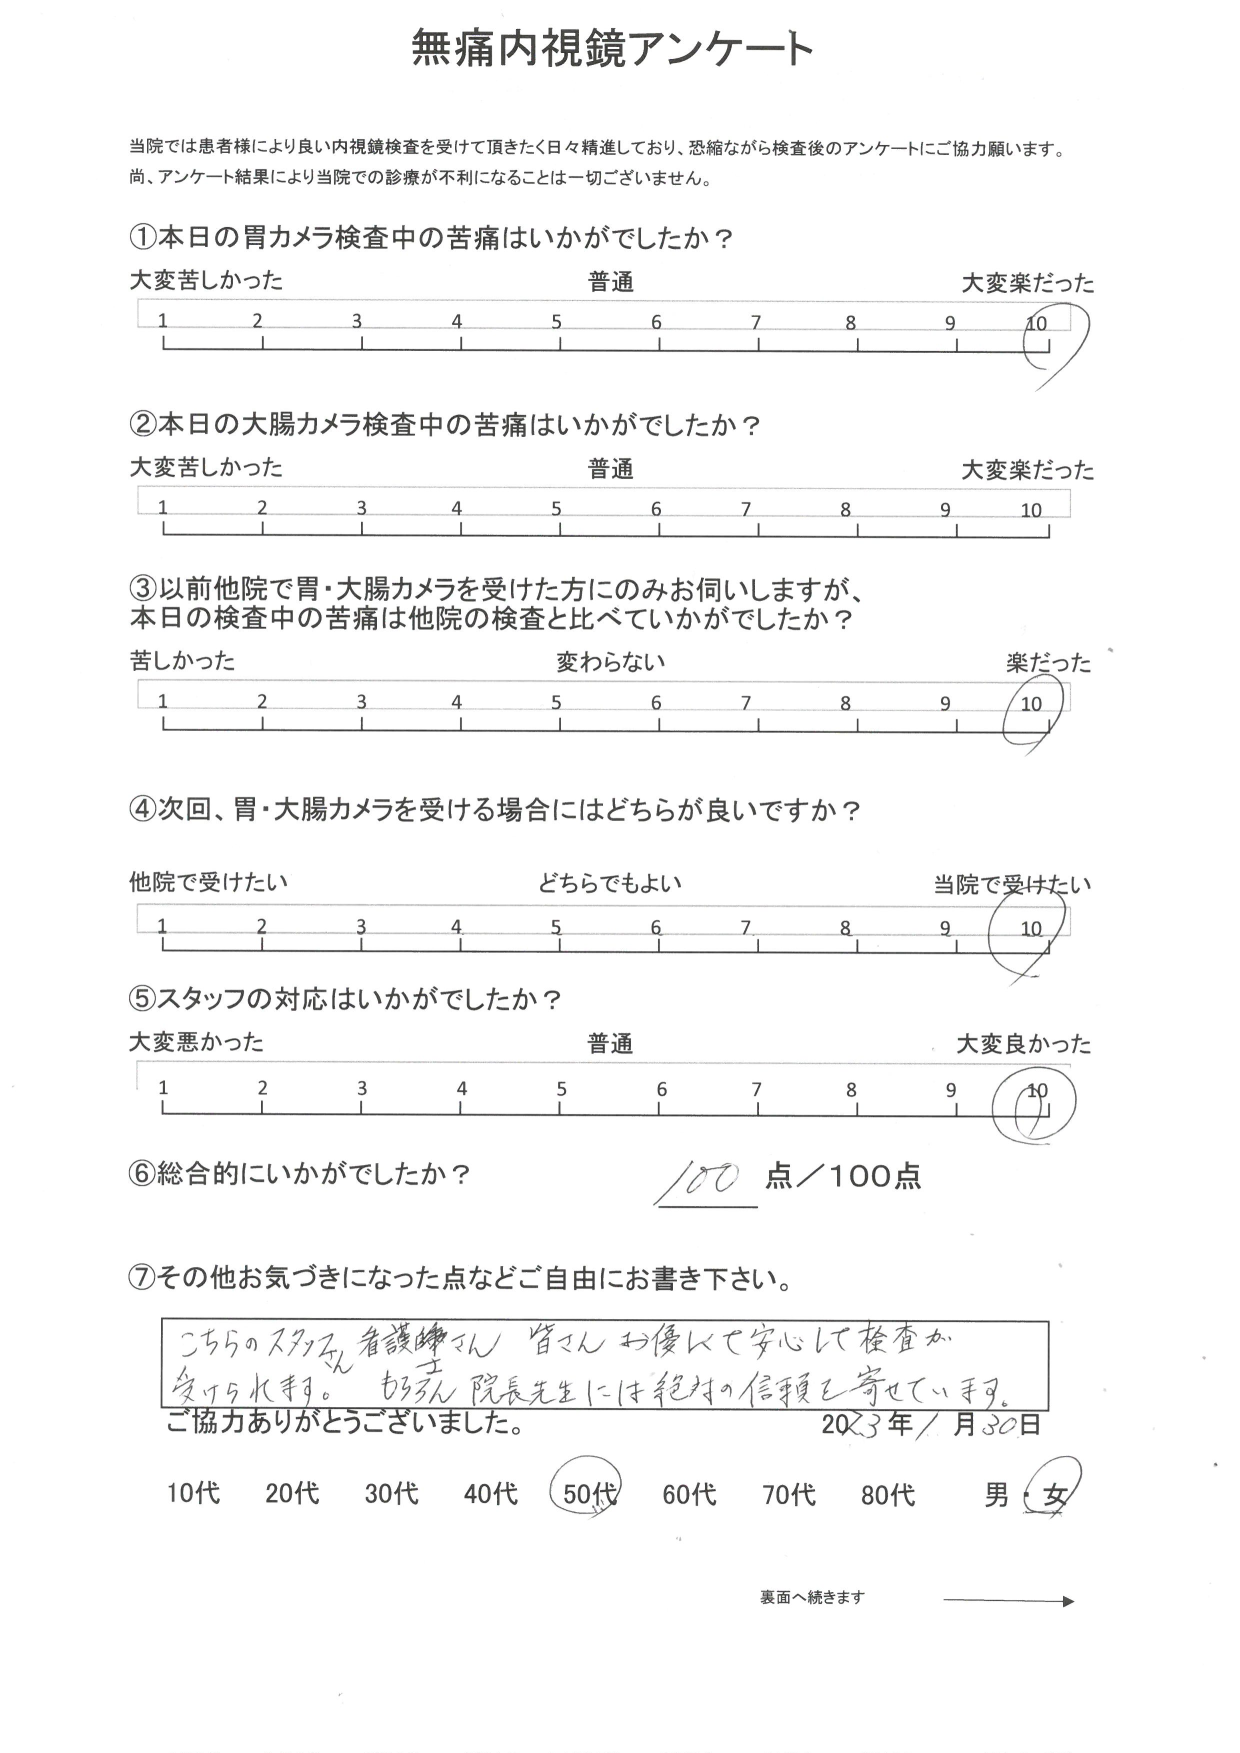 無痛内視鏡アンケート
当院では患者様により良い内視鏡検査を受けて頂きたく日々精進しており、恐縮ながら検査後のアンケートにご協力願います。
尚、アンケート結果により当院での診療が不利になることは一切ございません。
①本日の胃カメラ検査中の苦痛はいかがでしたか？
大変苦しかった 普通 大変楽だった
1 2 3 4 5 6 7 8 9 10
②本日の大腸カメラ検査中の苦痛はいかがでしたか？
大変苦しかった 普通 大変楽だった
1 2 3 4 5 6 7 8 9 10
③以前他院で胃・大腸カメラを受けた方にのみお伺いしますが、
本日の検査中の苦痛は他院の検査と比べていかがでしたか？
苦しかった 変わらない 楽だった
1 2 3 4 5 6 7 8 9 10
④次回、胃・大腸カメラを受ける場合にはどちらが良いですか？
他院で受けたい どちらでもよい 当院で受けたい
1 2 3 4 5 6 7 8 9 10
⑤スタッフの対応はいかがでしたか？
大変悪かった 普通 大変良かった
1 2 3 4 5 6 7 8 9 10
⑥総合的にいかがでしたか？ 100 点／100点
⑦その他お気づきになった点などご自由にお書き下さい。
こちらのスタッフさん 看護士さん 皆さん お優しくて安心して検査が
受けられます。 もちろん 院長先生には絶対の信頼を寄せています。
ご協力ありがとうございました。 2023年1月30日
10代 20代 30代 40代 50代 60代 70代 80代 男・女
裏面へ続きます